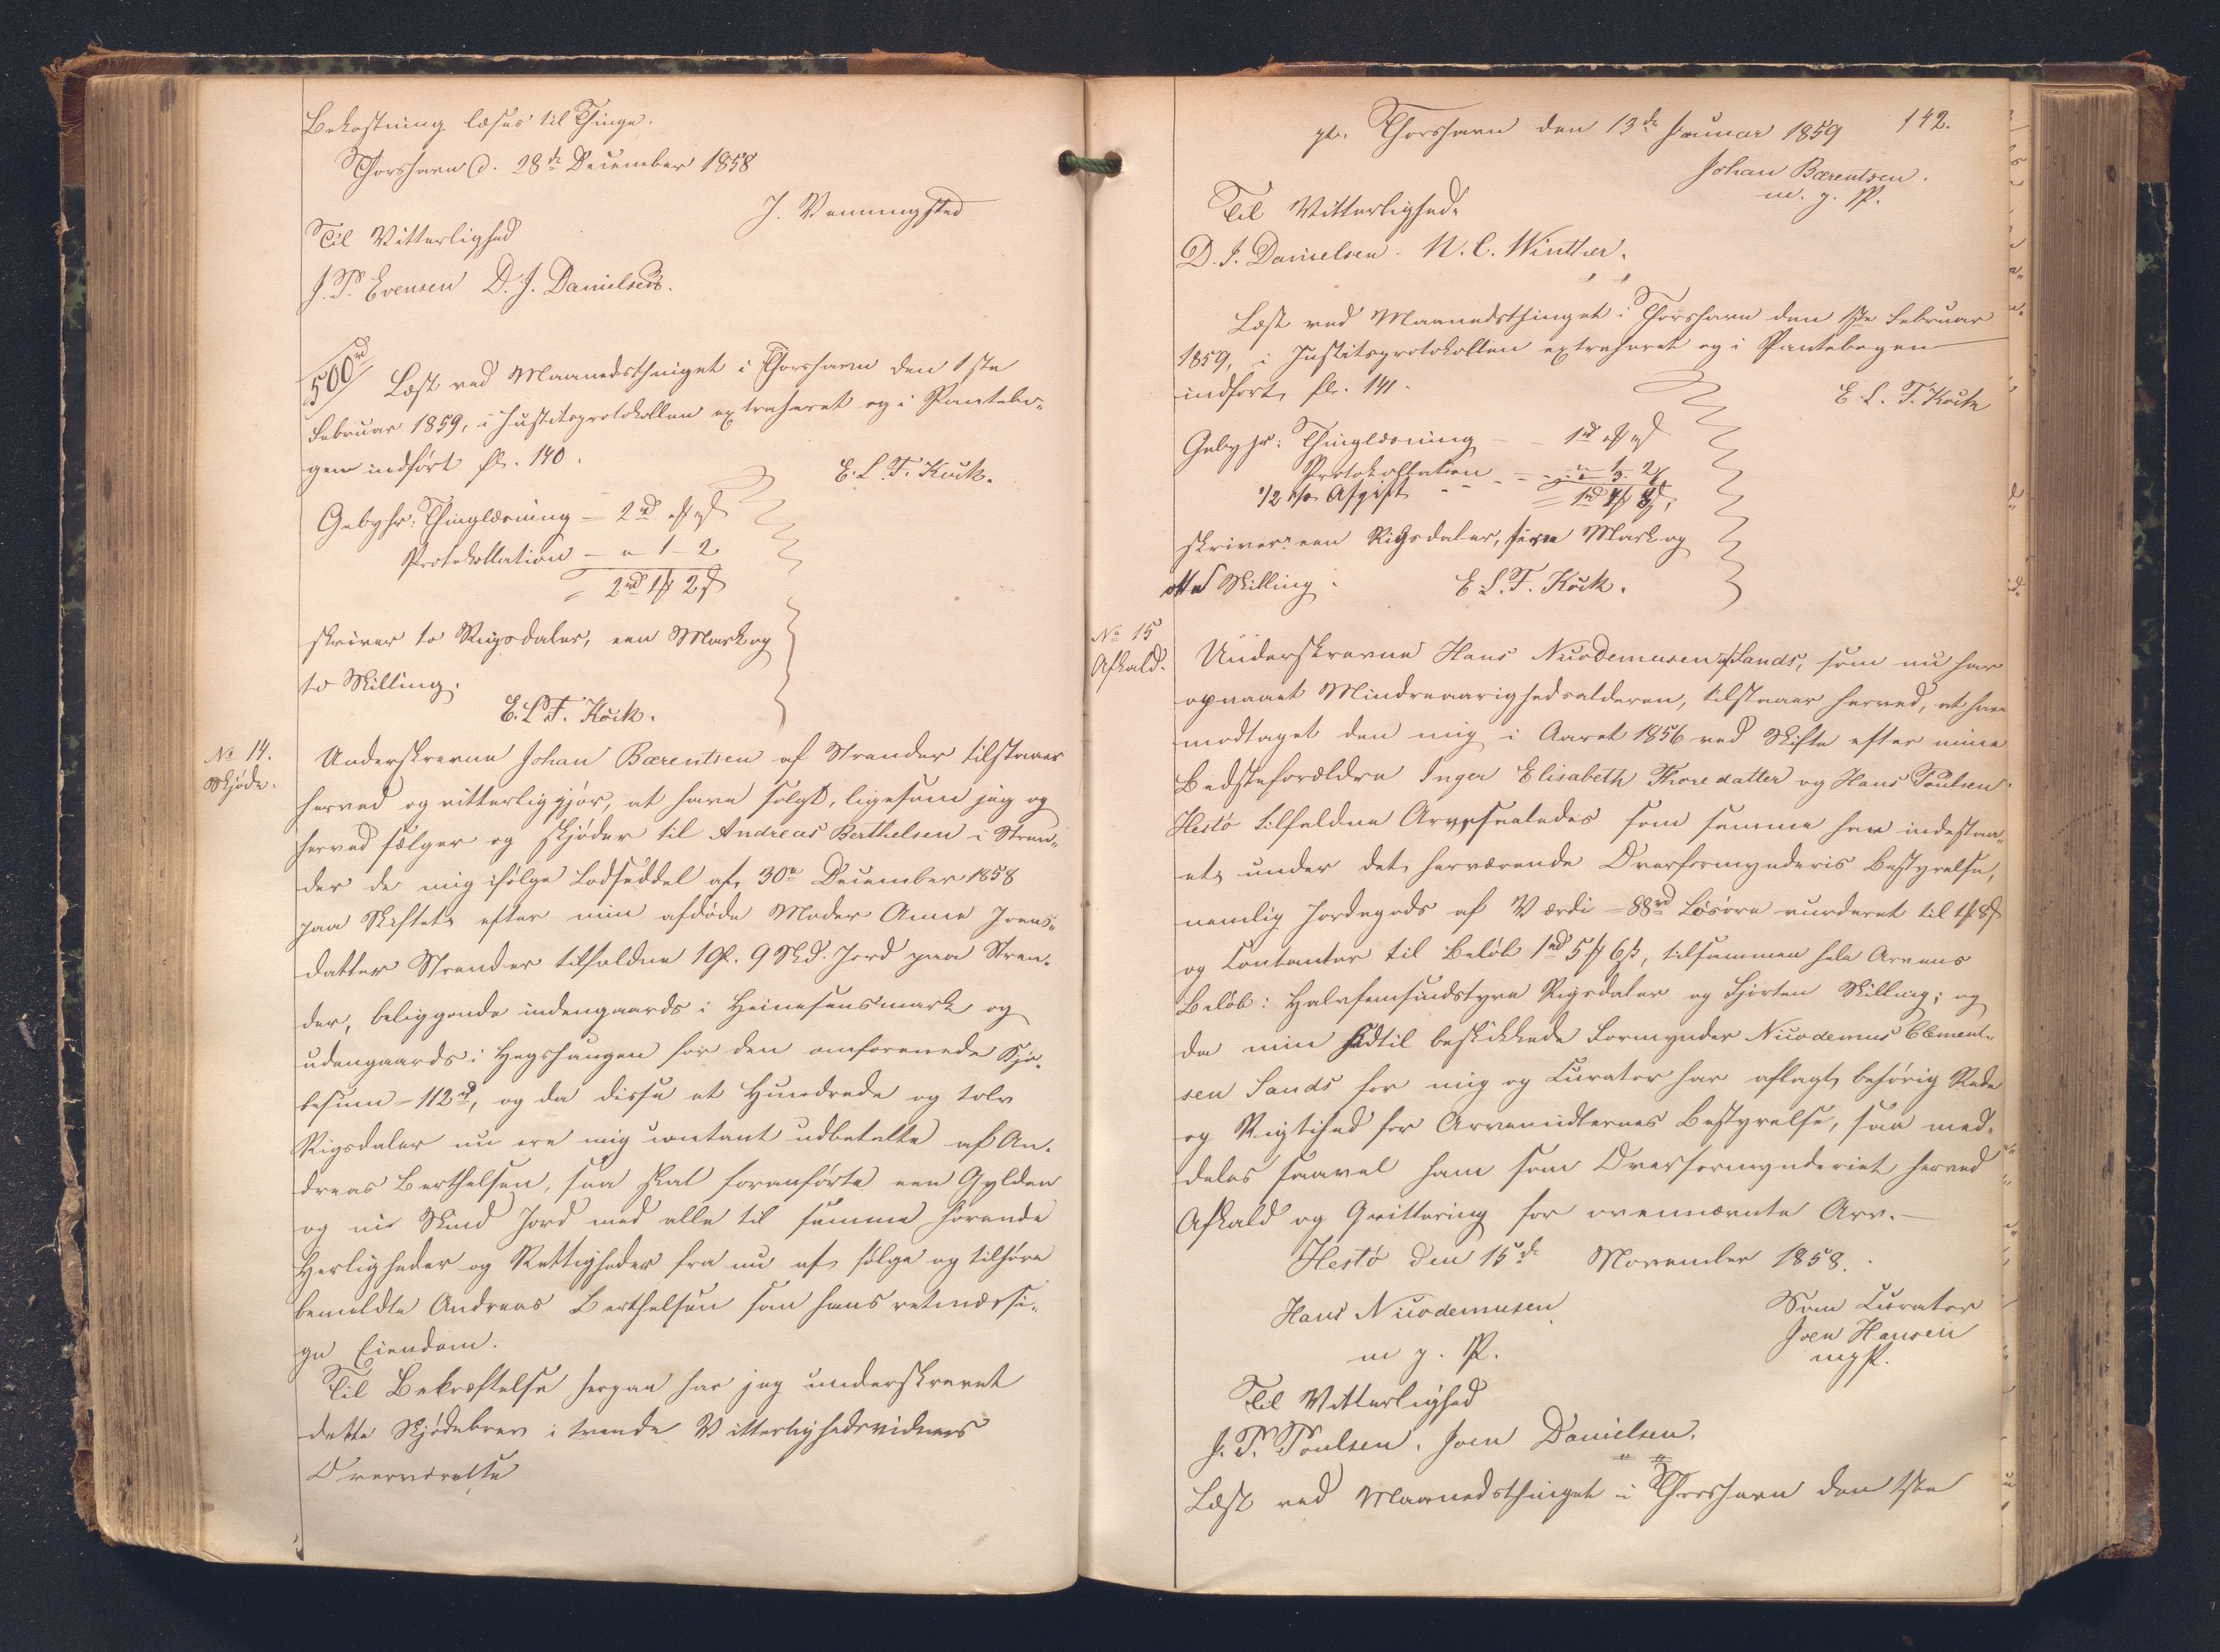 Bekostning læses til Thinge.
Thorshavn d. 28de December 1858
J. Wenningsted
Til Vitterlighed
J. P. Evensen D. J. Danielsen.
500rd
Læst ved Maanedsthinget i Thorshavn den 1ste
Februar 1859, i Justitsprotokollen extraheret og i Pantebo-
gen indført fol. 140.
E. L. F. Kock.
Gebyhr: Thinglæsning – 2rd
Protokollation – " 1 – 2
= 2rd 1 2
skriver to Rigsdaler, een Mark og
to Skilling.
E. L. F. Kock.
No 14.
Skjøde.
Underskrevne Johan Bærentsen af Strender tilstaaer
herved og vitterliggjør, at have solgt, ligesom jeg og
herved sælger og skjøder til Andreas Berthelsen i Stren-
der de mig ifølge Lodseddel af 30te December 1858
paa Skiftet efter min afdøde Moder Anne Joens-
datter Strender tilfaldne 1 G. 9 Skd. Jord paa Stren-
der, beliggende indengaards i Heinesensmark og
udengaards i Hegshaugen for den omforenede Kjø-
besum – 112rd, og da disse et Hundrede og tolv
Rigsdaler nu ere mig contant udbetalte af An-
dreas Berthelsen, saa skal foranførte een Gylden
og ni Skind Jord med alle til samme hørende
Herligheder og Rettigheder fra nu af følge og tilhøre
bemeldte Andreas Berthelsen som hans retmæssi-
ge Eiendom.
Til Bekræftelse herpaa har jeg underskrevet
dette Skjødebrev i tvende Vitterlighedsvidners
Overværelse
142.
pt. Thorshavn den 13de Januar 1859
Johan Bærentsen.
m. p. P.
Til Vitterlighed.
D. J. Danielsen. N. C. Winther.
Læst ved Maanedsthinget i Thorshavn den 1ste Februar
1859, i Justitsprotokollen extraheret og i Pantebogen
indført fol. 141.
E. L. F. Kock
Gebyhr: Thinglæsning – – 1rd
Protokollation – – " 1 – 2
1/2 % Afgift
skriver: een Rigsdaler, fire Mark og
otte Skilling.
E. L. F. Kock.
No 15
Afkald.
Underskrevne Hans Nicodemusen af Sands, som nu har
opnaaet Mindreaarighedsalderen, tilstaaer herved, at have
modtaget den mig i Aaret 1856 ved Skifte efter mine
Bedsteforældre Inger Elisabeth Thoredatter og Hans Poulsen
Hestø tilfaldne Arv saaledes som samme har indestaa-
et under det herværende Overformynderis Bestyrelse,
nemlig Jordegods af Værdi = 88rd Løsøre vurderet til
og Contanter til Beløb 1rd 5 6 , tilsammen hele Arvens
Beløb: Halvfemsindstyve Rigsdaler og Fjorten Skilling; og
da min hidtil beskikkede Formynder Nicodemus Clement-
sen Sands for mig og Curator har aflagt behørig Rede
og Rigtighed for Arvemidlernes Bestyrelse, saa med-
deles saavel ham som Overformynderiet herved
Afkald og Qvittering for ovennævnte Arv. –
Hestø den 15de November 1858.
Hans Nicodemusen
m. p. P.
Som Curator
Joen Hansen
m p P.
Til Vitterlighed
J. P. Poulsen. Joen Danielsen.
Læst ved Maanedsthinget i Thorshavn den 1ste